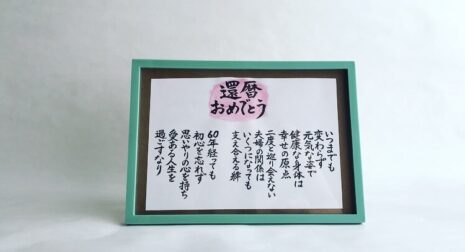 還暦
おめでとう
いつまでも
変わらず
元気な姿で
健康な身体は
幸せの原点
二度と巡り会えない
夫婦の関係は
いくつになっても
支え合える絆
60年経っても
初心を忘れず
思いやりの心を持ち
愛ある人生を
過ごすなり